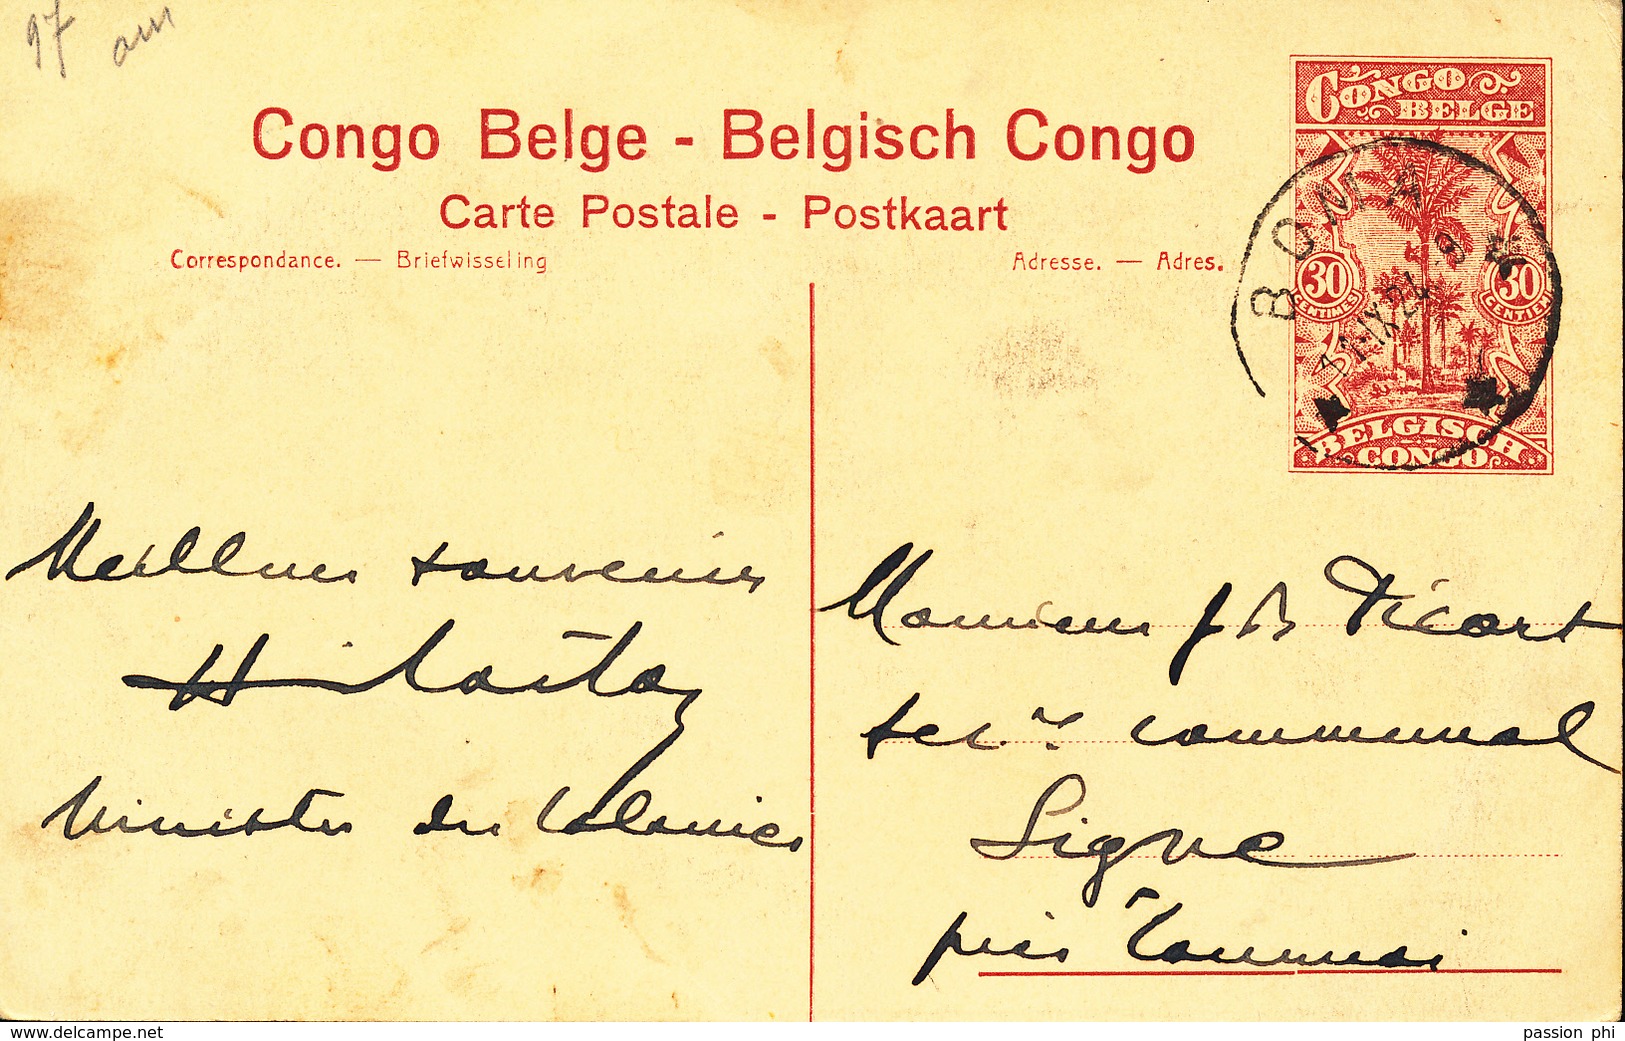 97
Congo Belge - Belgisch Congo
Carte Postale - Postkaart
Correspondance. — Briefwisseling
Adresse. — Adres.
CONGO BELGE
30 CENTIMES
30 CENTIEM
BELGISCH CONGO
BOMA
Meilleurs souvenirs
Ministre des Colonies
Monsieur J B Picart
secr. communal
Signe
près Tournai
www.delcampe.net
passion phi